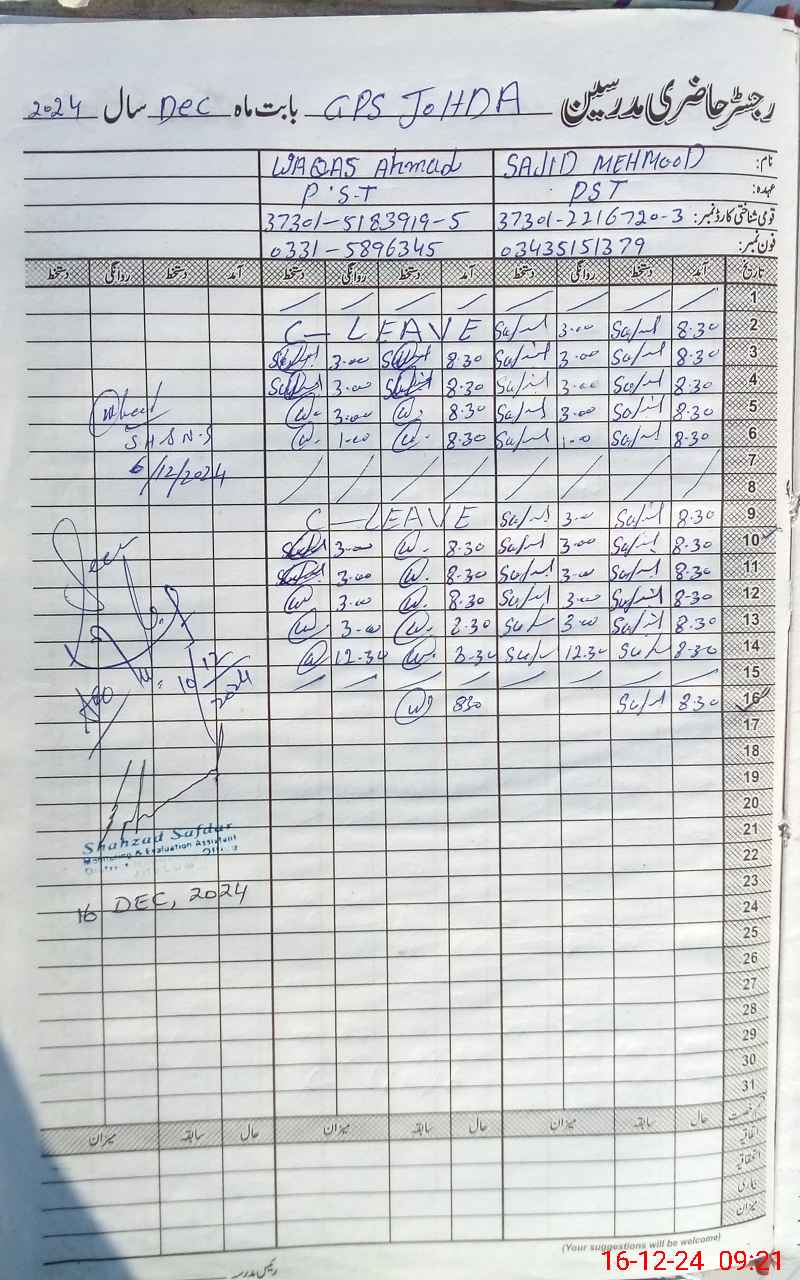 رجسٹر حاضری مدرسین GPS JOHDA بابت ماہ Dec سال 2024
نام: SAJID MEHMOOD WAQAS Ahmad
عہدہ: PST P.S.T
قومی شناختی کارڈ نمبر: 37301-2216720-3 37301-5183919-5
فون نمبر: 03435151379 0331-5896345
تاریخ آمد دستخط روانگی دستخط آمد دستخط روانگی دستخط آمد دستخط روانگی دستخط
1
2 8.30 Sajid 3.00 Sajid C-LEAVE
3 8.30 Sajid 3.00 Sajid 8.30 3.00
4 8.30 Sajid 3.00 Sajid 8.30 3.00
5 8.30 Sajid 3.00 Sajid 8.30 W. 3.00 W.
6 8.30 Sajid 1.00 Sajid 8.30 W. 1.00 W.
SHSNS
7
6/12/2024
8
9 8.30 Sajid 3.00 Sajid C-LEAVE
10 8.30 Sajid 3.00 Sajid 8.30 W. 3.00
11 8.30 Sajid 3.00 Sajid 8.30 W. 3.00
12 8.30 Sajid 3.00 Sajid 8.30 W. 3.00 W.
13 8.30 Sajid 3.00 Sajid 8.30 W. 3.00 W.
14 8.30 Sajid 12.30 Sajid 8.30 W. 12.30 W.
15
10/12/2024
16 8.30 Sajid 830 W.
17
18
19
20
21
Shahzad Safdar
Monitoring & Evaluation Assistant
22
23
16 DEC, 2024
24
25
26
27
28
29
30
31
حال سابقہ میزان حال سابقہ میزان حال سابقہ میزان
اتفاقیہ
استحقاقیہ
بیماری
میزان
(Your suggestions will be welcome)
رئیس مدرسہ
16-12-24 09:21